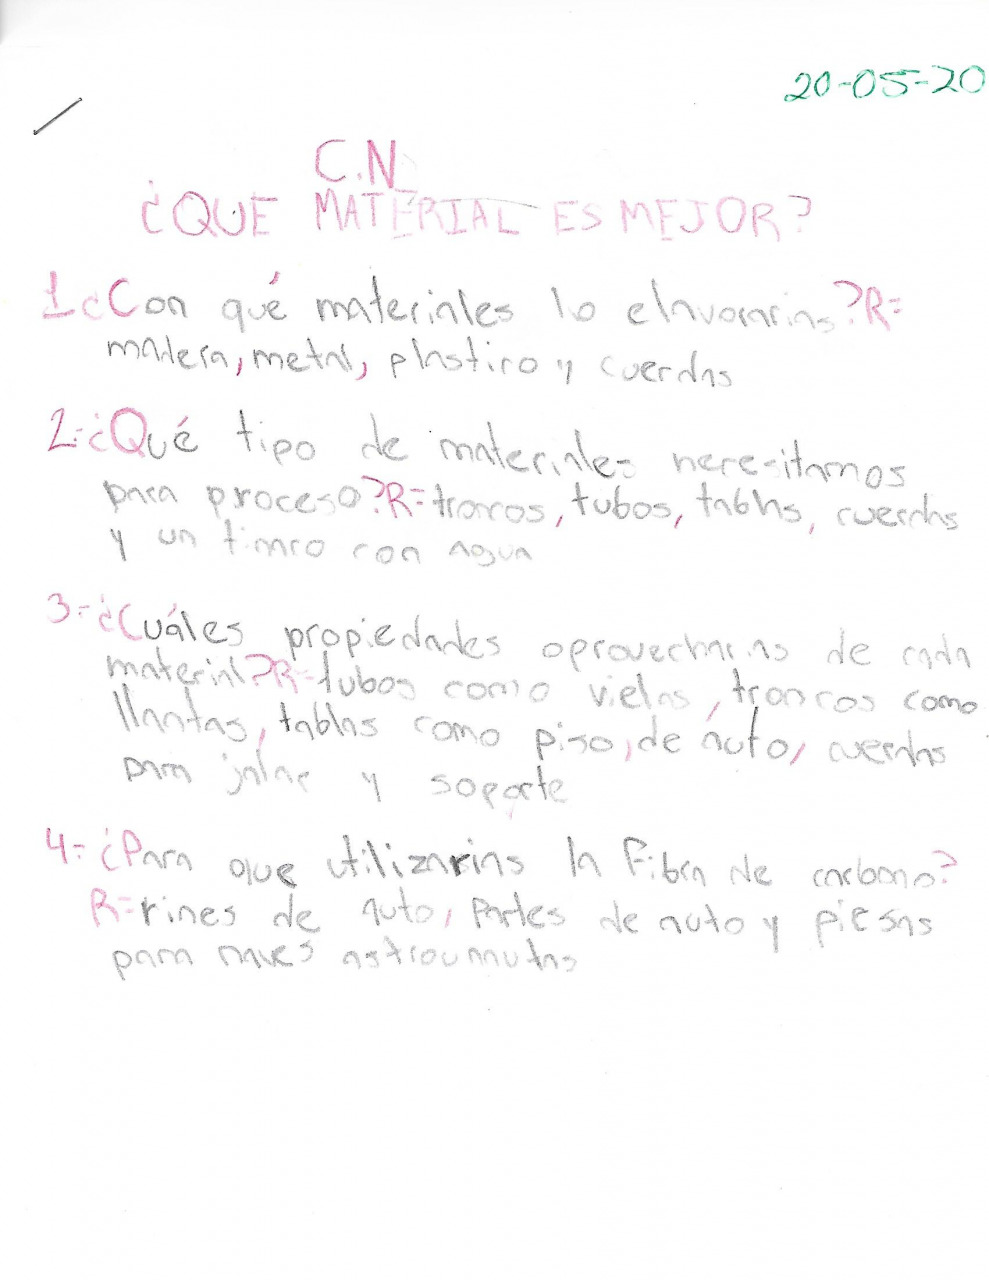 20-05-20
C.N
¿QUE MATERIAL ES MEJOR?
1¿Con qué materiales lo elavorarias?R=
madera, metal, plastico y cuerdas
2-¿Qué tipo de materiales necesitamos
para proceso?R=troncos, tubos, tablas, cuerdas
y un tinaco con agua
3-¿Cuáles propiedades aprovecharias de cada
material?R=tubos como vielas, troncos como
llantas, tablas como piso, de auto, cuerdas
para jalar y soporte
4-¿Para que utilizarias la Fibra de carbono?
R=rines de auto, partes de auto y piesas
para naves